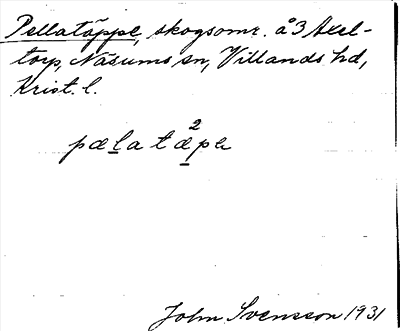 Pellatäppe, skogsomr. å 3 Axel-
torp, Näsums sn, Villands hd,
Krist. l.
pælatæ²pe
John Svensson 1931